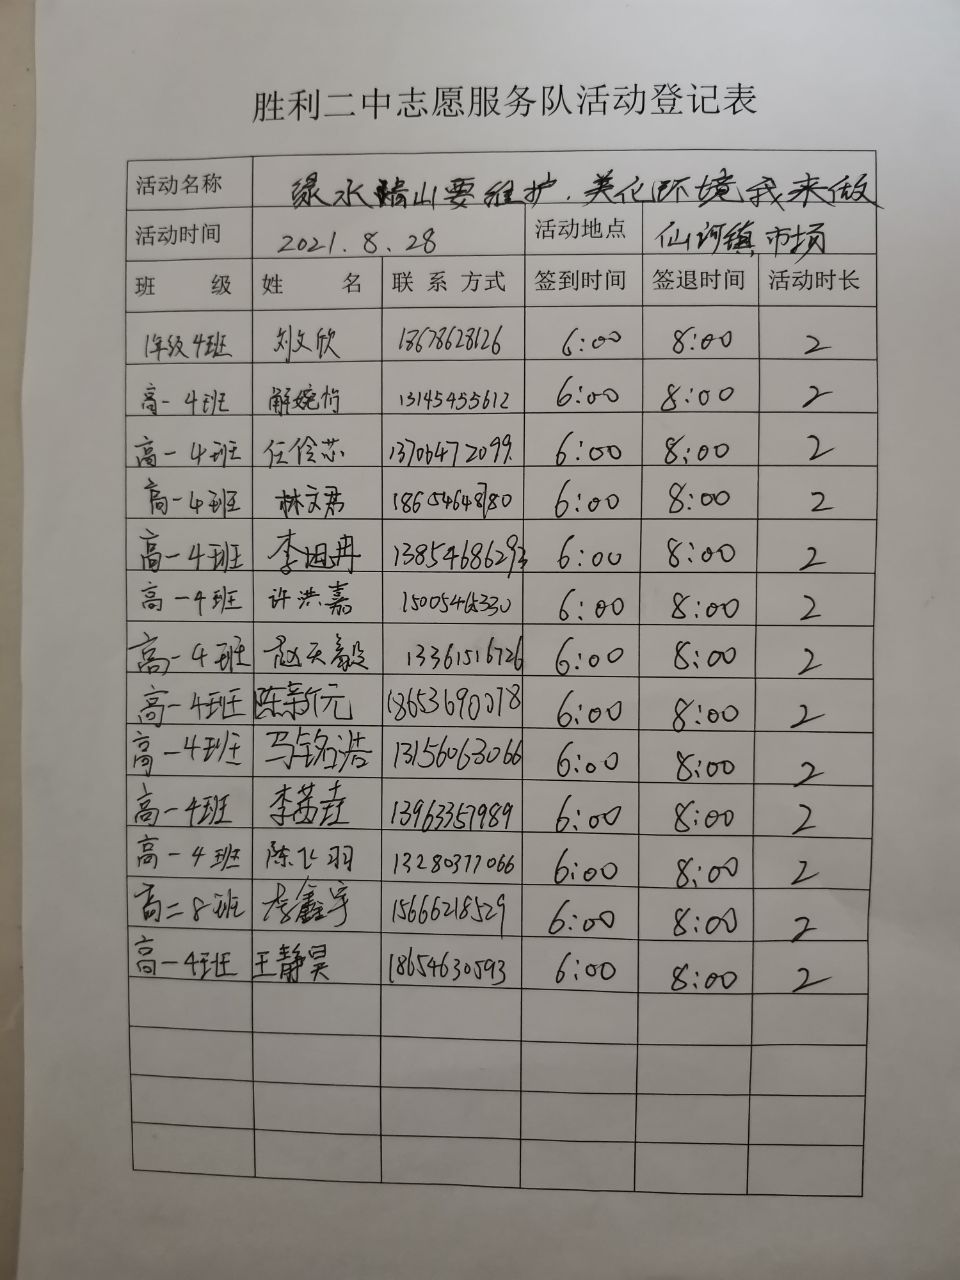 胜利二中志愿服务队活动登记表
活动名称 绿水青山要维护.美化环境我来做
活动时间 2021.8.28 活动地点 仙河镇市场
班 级 姓 名 联系方式 签到时间 签退时间 活动时长
1年级4班 刘文欣 18678628126 6:00 8:00 2
高一4班 解婉竹 13145455612 6:00 8:00 2
高一4班 任伶芯 13706472099 6:00 8:00 2
高一4班 林文君 6:00 8:00 2
高一4班 李旭冉 13854686293 6:00 8:00 2
高一4班 许洪嘉 6:00 8:00 2
高一4班 赵天毅 13361516726 6:00 8:00 2
高一4班 陈新元 18653690078 6:00 8:00 2
高一4班 马铭浩 13156063066 6:00 8:00 2
高一4班 李茜 13963357989 6:00 8:00 2
高一4班 陈飞羽 13280377066 6:00 8:00 2
高二8班 李鑫宇 15666218529 6:00 8:00 2
高一4班 王静昊 18654630593 6:00 8:00 2